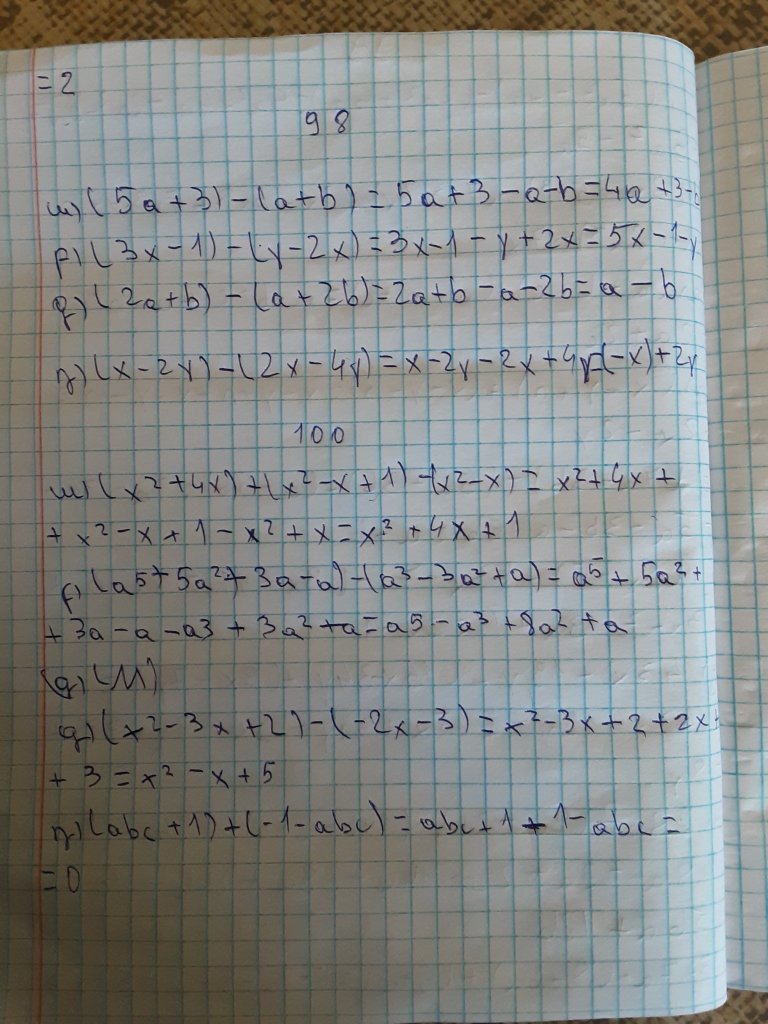 = 2
98
ա) (5a+3) - (a+b) = 5a+3-a-b = 4a+3-
բ) (3x-1) - (y-2x) = 3x-1-y+2x = 5x-1-y
գ) (2a+b) - (a+2b) = 2a+b-a-2b = a-b
դ) (x-2y) - (2x-4y) = x-2y-2x+4y=(-x)+2y
100
ա) (x²+4x)+(x²-x+1)-(x²-x) = x²+4x+
+ x²-x+1-x²+x = x²+4x+1
բ) (a⁵+5a²+3a-a)-(a³-3a²+a) = a⁵+5a²+
+ 3a-a-a³+3a²-a = a⁵-a³+8a²+a
գ) (x²-3x+2)-(-2x-3) = x²-3x+2+2x+
+ 3 = x²-x+5
դ) (abc+1)+(-1-abc) = abc+1-1-abc =
= 0